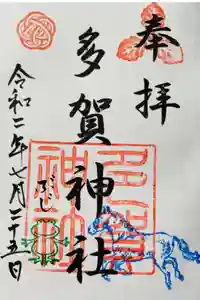 奉拝
多賀神社
令和二年七月二十五日